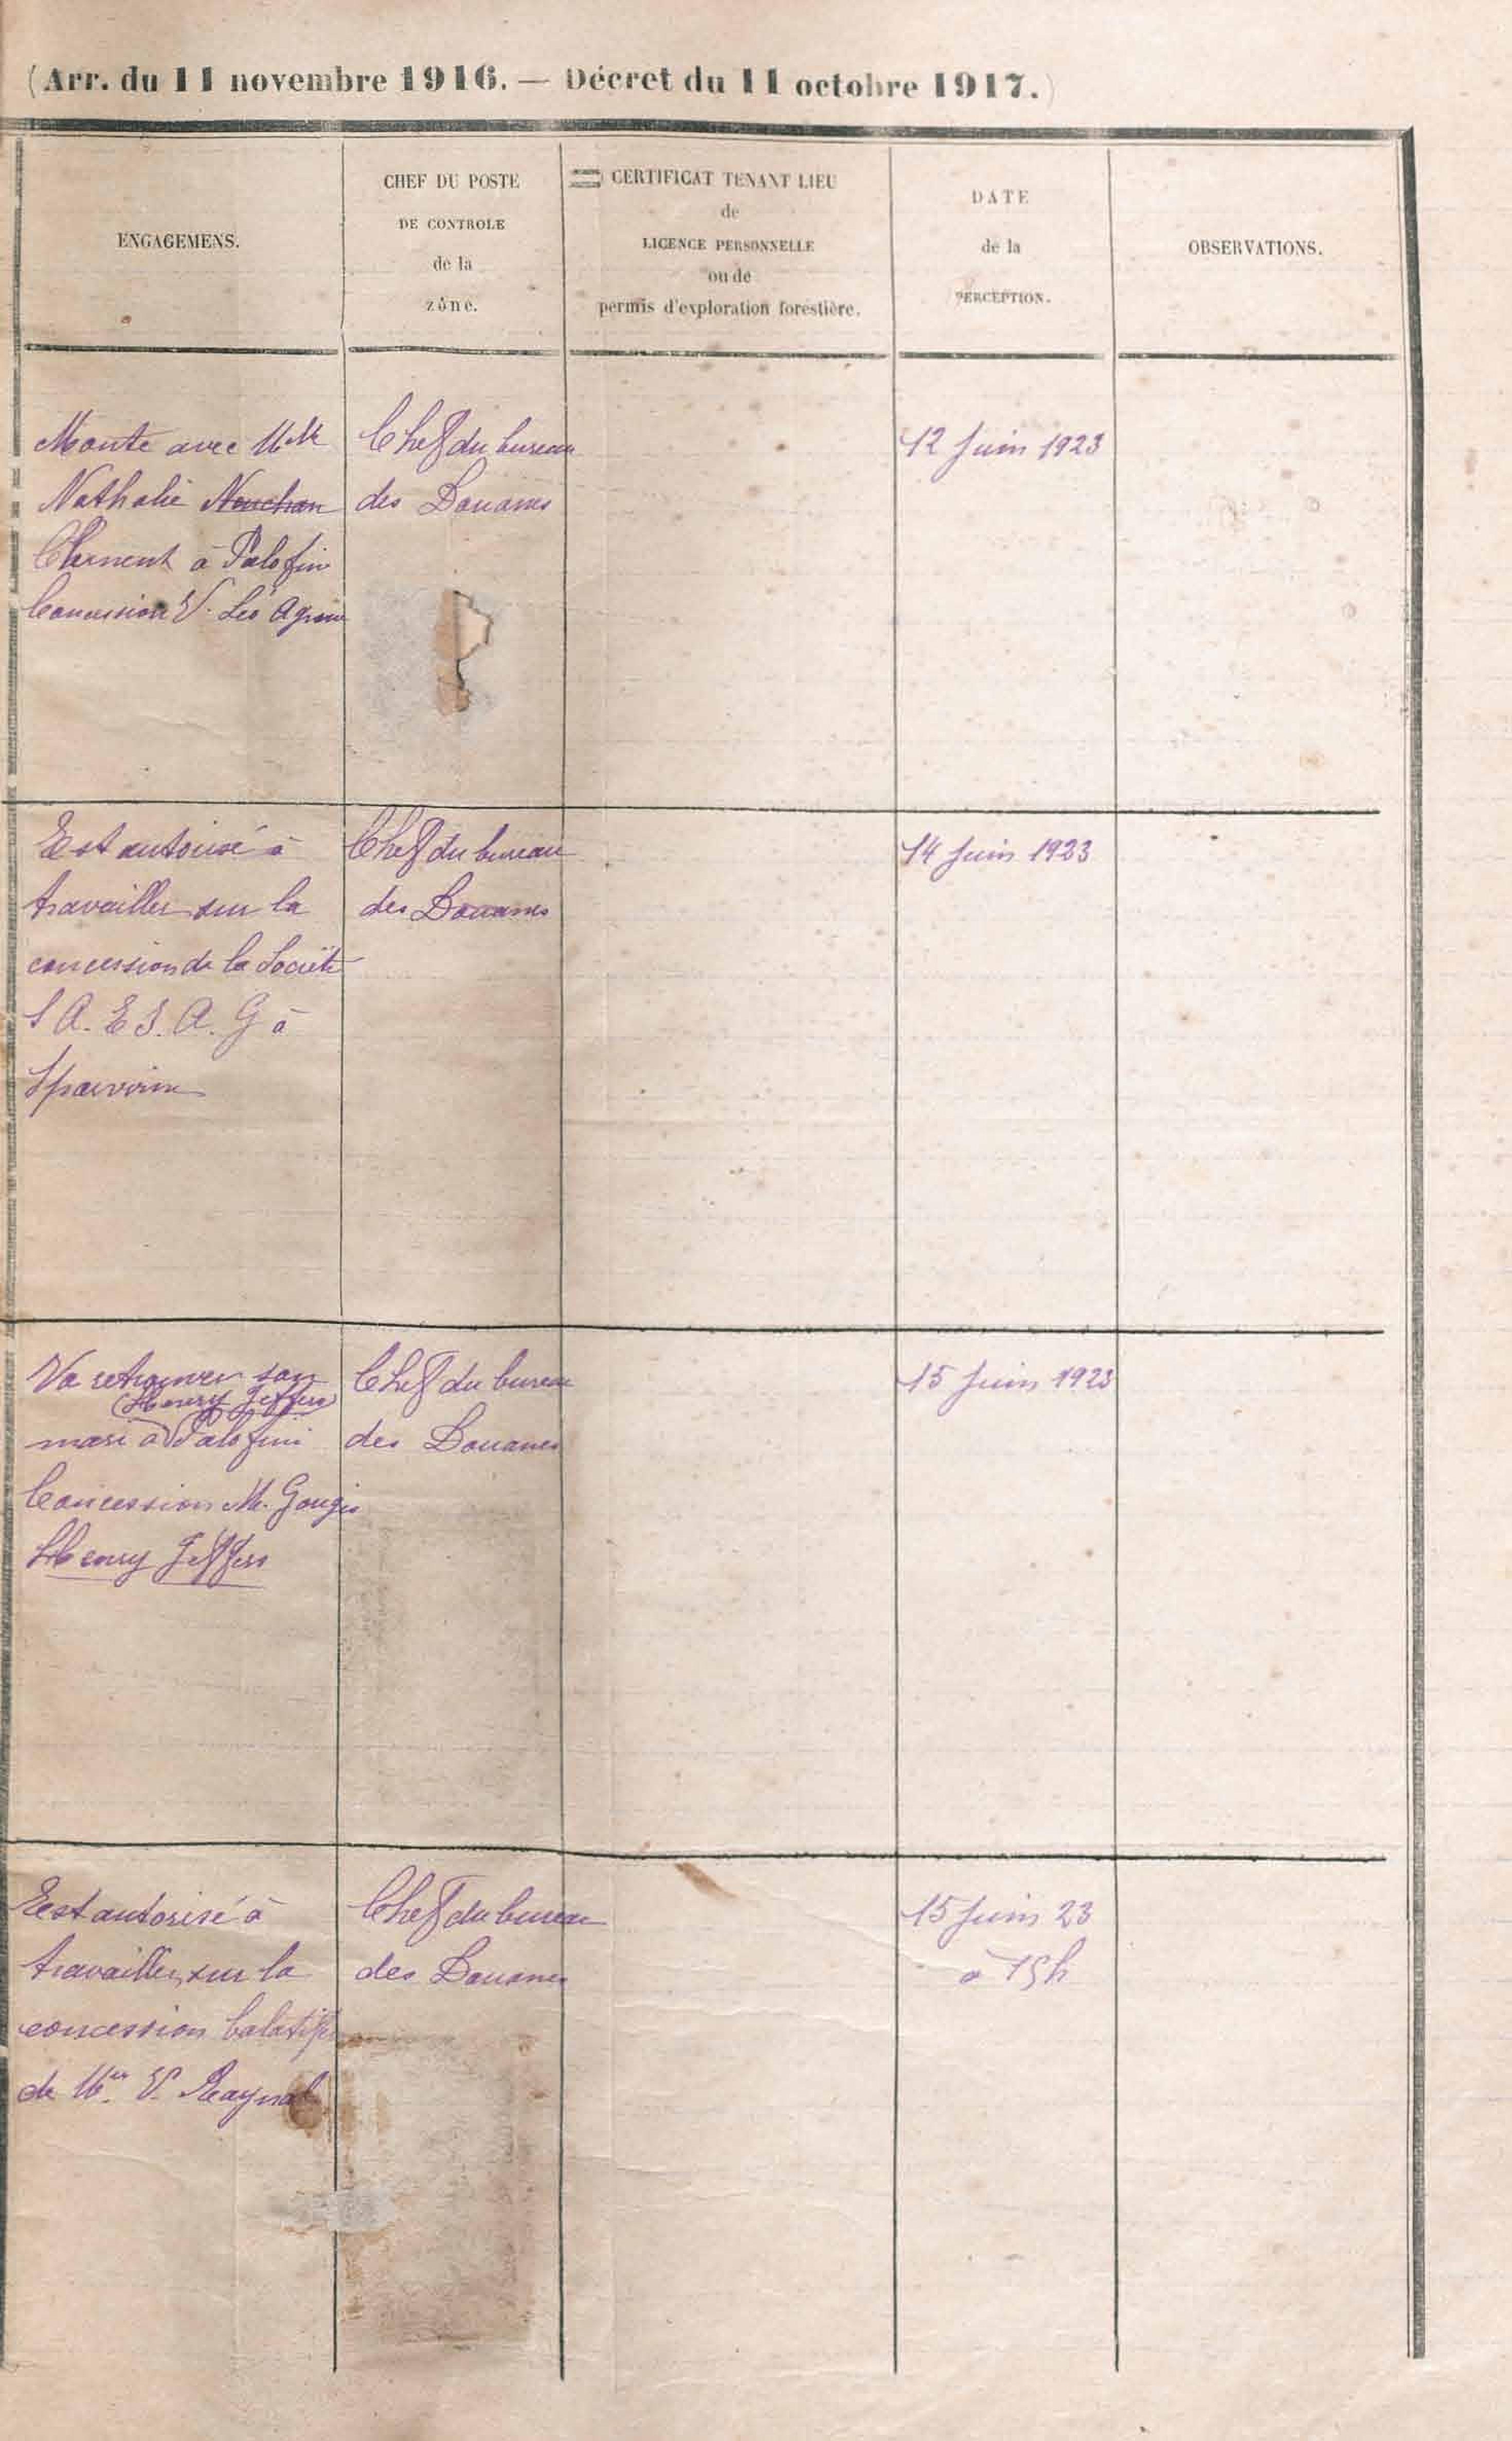 (Arr. du 11 novembre 1916. — Décret du 11 octobre 1917.)
ENGAGEMENS.
CHEF DU POSTE
DE CONTROLE
de la
zône.
CERTIFICAT TENANT LIEU
de
LICENCE PERSONNELLE
ou de
permis d'exploration forestière.
DATE
de la
PERCEPTION.
OBSERVATIONS.
Monte avec Melle
Nathalie Neuchan
Clément à Palofin
Concession V. Léo
Chef du bureau
des Douanes
12 Juin 1923
Est autorisé à
travailler sur la
concession de la Société
S A. E S. A. G à
Chef du bureau
des Douanes
14 Juin 1923
Va retrouver son
(Henry Jeffers)
mari à Palofini
Concession M. Gougis
Henry Jeffers
Chef du bureau
des Douanes
15 Juin 1923
Est autorisé à
travailler sur la
concession balatifère
de Mr. V. Raynal
Chef du bureau
des Douanes
15 Juin 23
à 15h